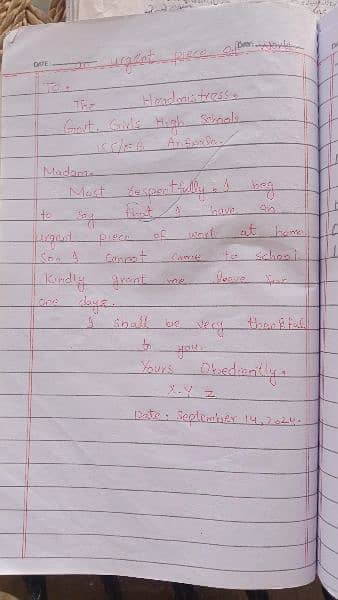 DATE:
an urgent piece of work
To,
The Headmistress,
Govt. Girls High School
Madam,
Most respectfully, I beg
to say that I have an
urgent piece of work at home
So, I cannot come to school.
Kindly grant me leave for
one days.
I shall be very thankful
to you.
Yours Obediently,
X.Y Z
Date: September 14, 2024.